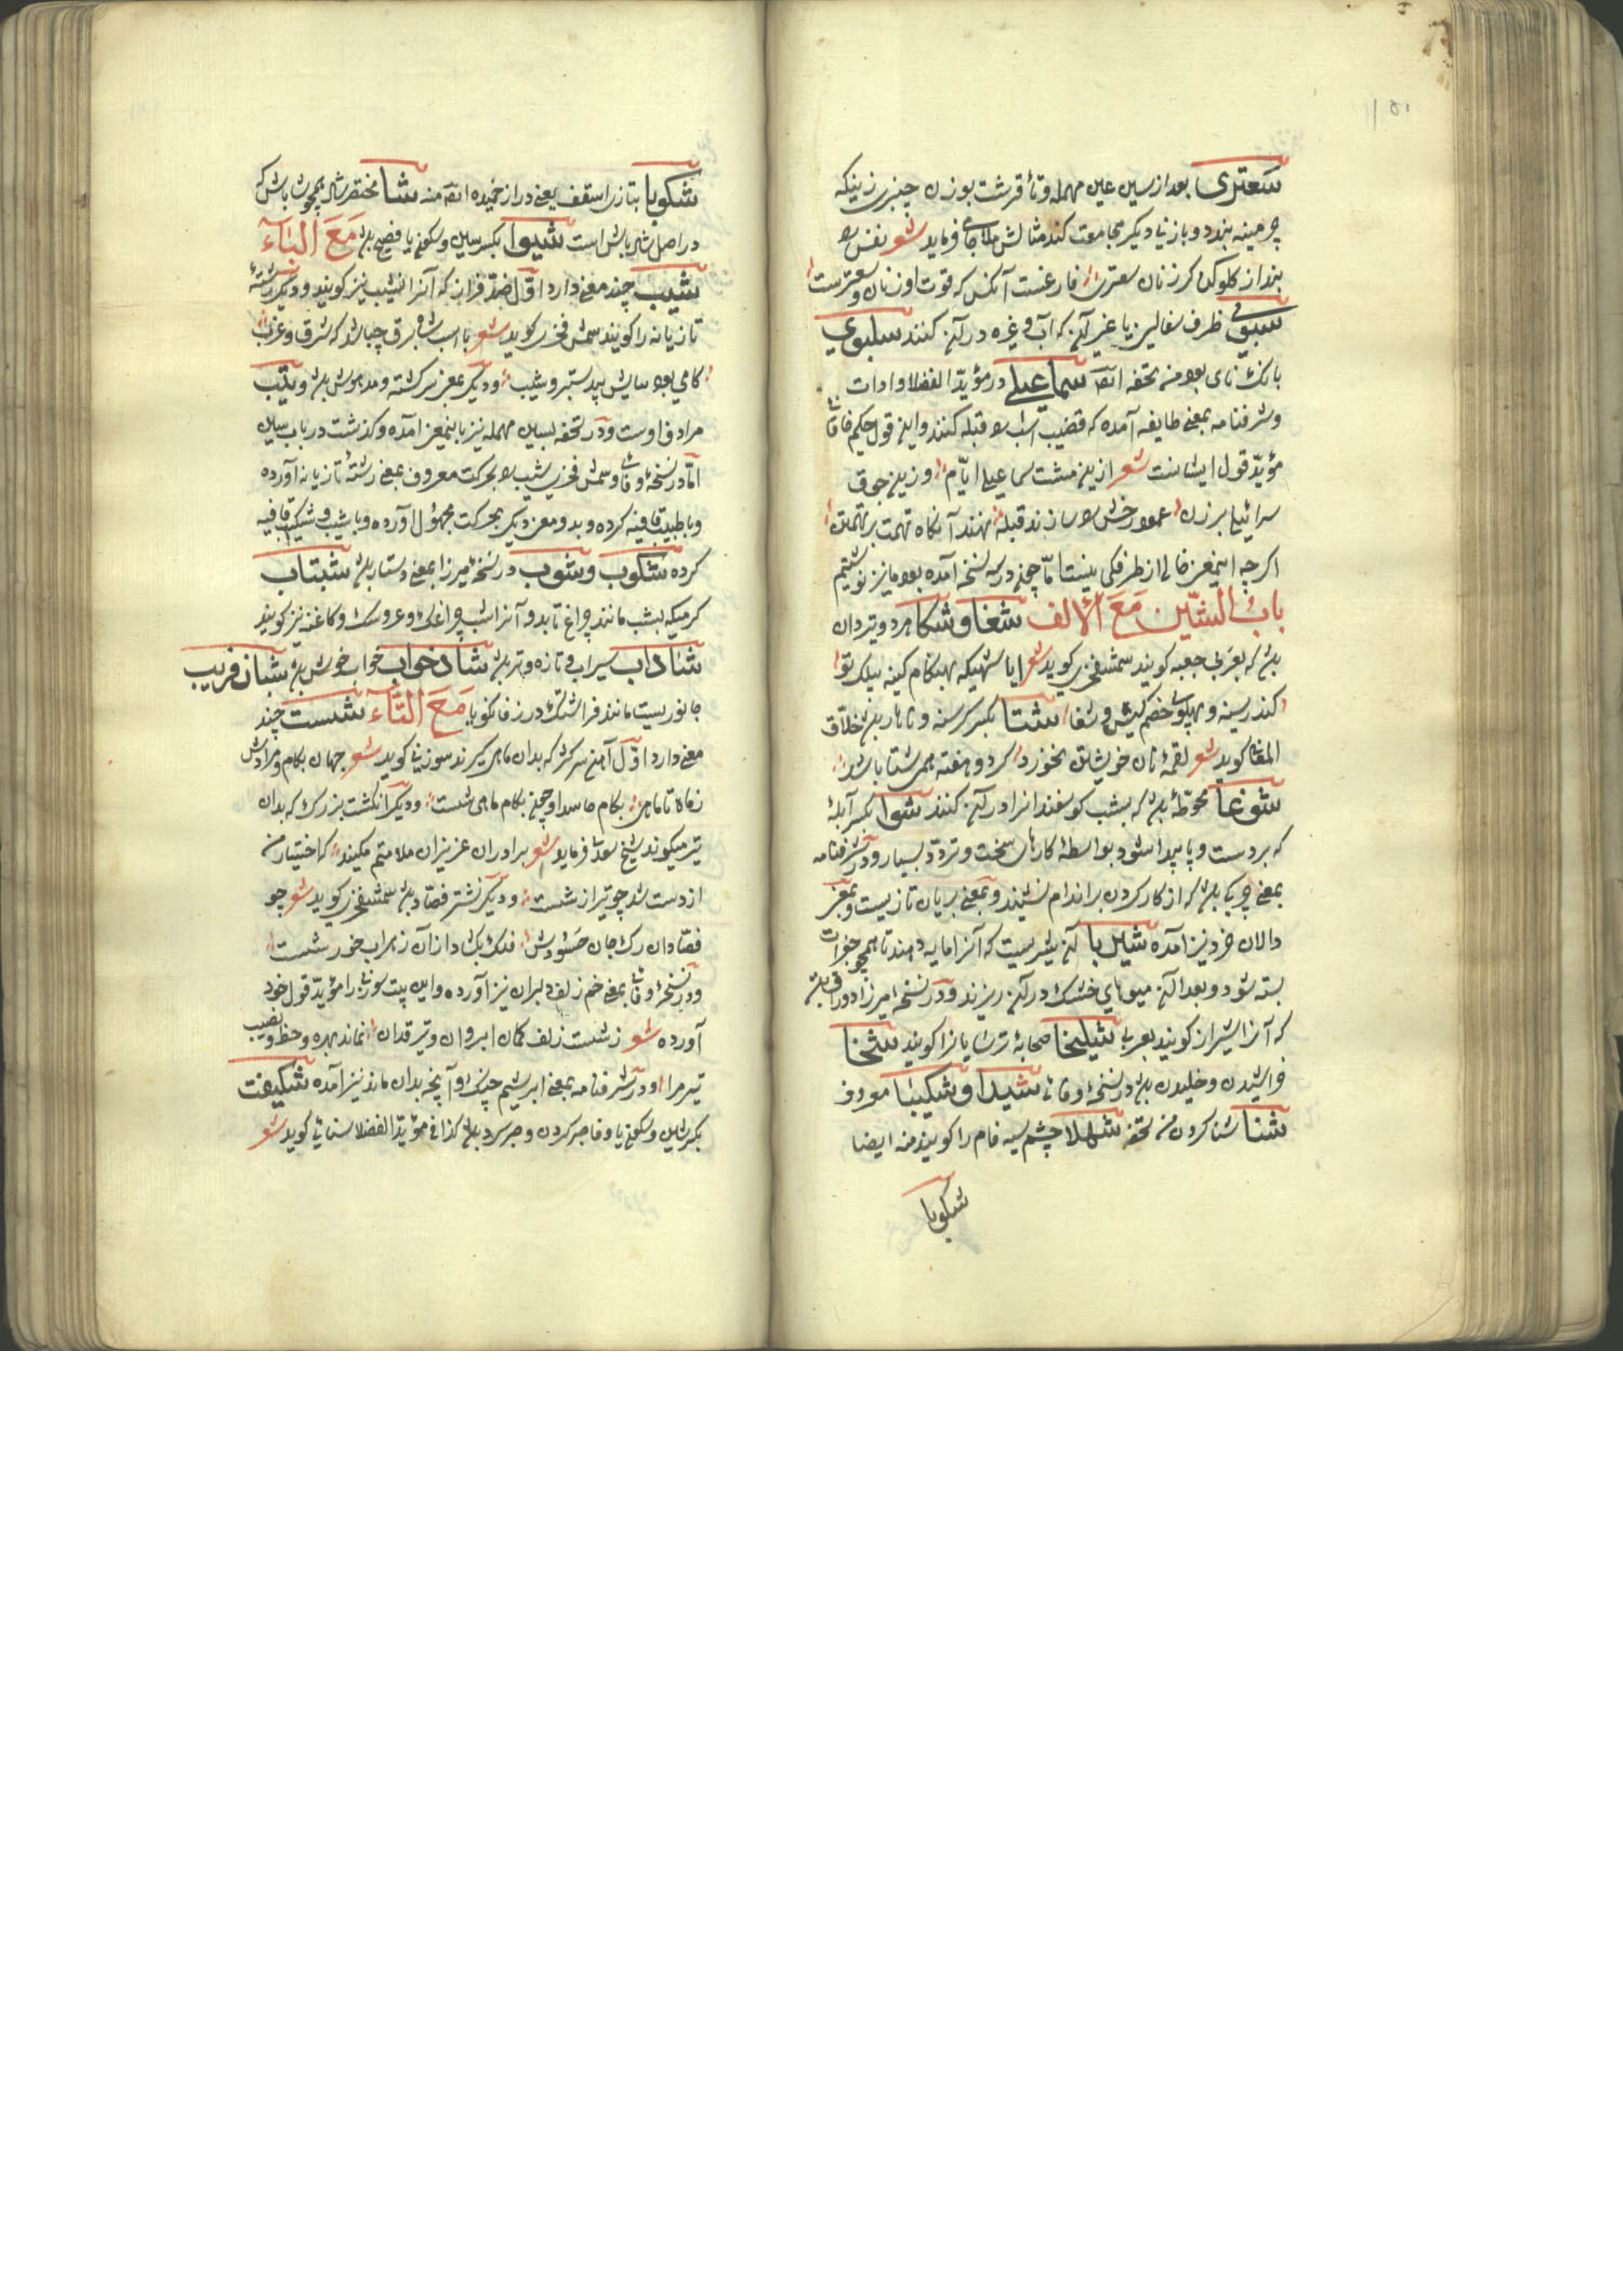 سعتری بعد از سین عین مهمله و تاء قرشت بوزن چنبری زنیکه
چرمینه بندد و با زنا دیکر مجامعت کند مثالش ملا جامی فرماید شعر نفس
بند از کلو کرزنان سعتری فارغست آنکس که قوت او زنان و سعترست
سبوی ظرف سفالین یا غیر آن که آب و غیره در آن کنند
بانک نای بود من تحفه سماعیلے در مؤید الفضلا و ادات
و شرفنامه بمعنی طایفه آمده که قضیب اسب را قبله کنند و این قول حکیم خاقانی
مؤید قول ایشانست شعر ازین مشت سماعیل ایام وزین جوق
سرائیل برزن عمود رخش را سازند قبله نهند آنکاه تهمت بر تهمتن
اکر چه اینمعنی خالی از ظرفکی نیست اما چون در سه نسخه آمده بود ما نیز نوشتیم
باب الشین مع الالف شغا و شکا مرد و تیردان
باشد که بعربی جعبه کویند شمس فخری کوید شعر ایا شهیکه بهنکام کینه بیلک تو
کند ز سینه و پهلوی خصم کیش و شغا شتا بکسر کرسنه و ناهار بود خلاق
المعانی کوید شعر لقمهٔ نان خویشتن نخورد کر دو هفته همی شتا باشد
شوغا محوطهٔ باشد که بشب کوسفندانرا در آن کنند شوا بکسر آبله
که بر دست و پا پیدا شود بواسطهٔ کارهای سخت و تردد بسیار و در شرفنامه
بمعنی چرکی باشد که از کار کردن بر اندام نشیند و بمعنی بریان تازیست و بمعنی
دالان خرد نیز آمده شیربا آن شیریست که آنرا مایه دهند تا همچو جغرات
بسته شود و بعد از آن میوهای خشک در آن ریزند و در نسخهٔ میرزا دوراق باشد
که آنرا شیراز کویند بعربی شیلیخا صحابهٔ ترسایانرا کویند شخا
خراشیدن و خلیدن باشد در نسخهٔ وفائی شیدا و شکیبا معروف
شنا شنا کردن من تحفه شهلا چشم سیه فام را کویند منه ایضا
شکوبا
شکوبا بتازی اسقف یعنی دراز خمیده منه شا مختصر شاد همچو شاباش که
در اصل شاد باش است شیوا بکسر شین و سکون یا فصیح باشد مع الباء
شیب چند معنی دارد اول ضد فراز که آنرا نشیب نیز کویند و دیکر رشتهٔ
تازیانه را کویند شمس فخری کوید شعر با اسب شاه برق چه باشد که شرق و غرب
کامی بود بیایش بی دستبر و شیب و دیکر بمعنی سرکشته و مدهوش باشد و تیب
مرادف اوست و در تحفه بسین مهمله نیز باینمعنی آمده و کذشت در باب سین
اما در نسخهٔ وفائی و شمس فخری شیب را بحرکت معروف بمعنی رشتهٔ تازیانه آورده
و با طبیب قافیه کرده و بدو معنی دیکر بحرکت مجهول آورده و با شیب و شکیب قافیه
کرده شکوب و شوب در نسخهٔ میرزا بمعنی دستار باشد شبتاب
کرمیکه بشب مانند چراغ تابد و آنرا شبچراغک و عروسک و کاغنه نیز کویند
شاداب سیراب و تازه و تر باشد شادخواب خواب خوش باشد شبان فریب
جانوریست مانند فراشتک در زفانکویا مع التاء شست چند
معنی دارد اول آهنی سرکژ که بدان ماهی کیرند سوزنی کوید شعر جهان بکام و مرادش
ز ماه تا ماهی بکام حاسد او چون بکام ماهی شست و دیکر انکشت بزرک که بدان
تیر میکیرند شیخ سعدی فرماید شعر برادران عزیزان ملامتم مکنید که اختیار من
از دست شد چو تیر از شست و دیکر نشتر فصاد باشد شمس فخری کوید شعر چو
فصادان رک جان حسودش فلک بکشاد از آن زهراب خور شست
و در نسخهٔ وفائی بمعنی خم زلف دلبران نیز آورده و این بیت سوزنی را مؤید قول خود
آورده شعر ز شست زلف کمان ابروان و تیر قدان نماند بهره و حظ و نصیب
تیر مرا و در شرفنامه بمعنی ابریشم چنک و آنچه بدان ماند نیز آمده شکیفت
بکسر شین و سکون یا و فا صبر کردن و صبر کرد باشد کذا فی مؤید الفضلا سنائی کوید شعر